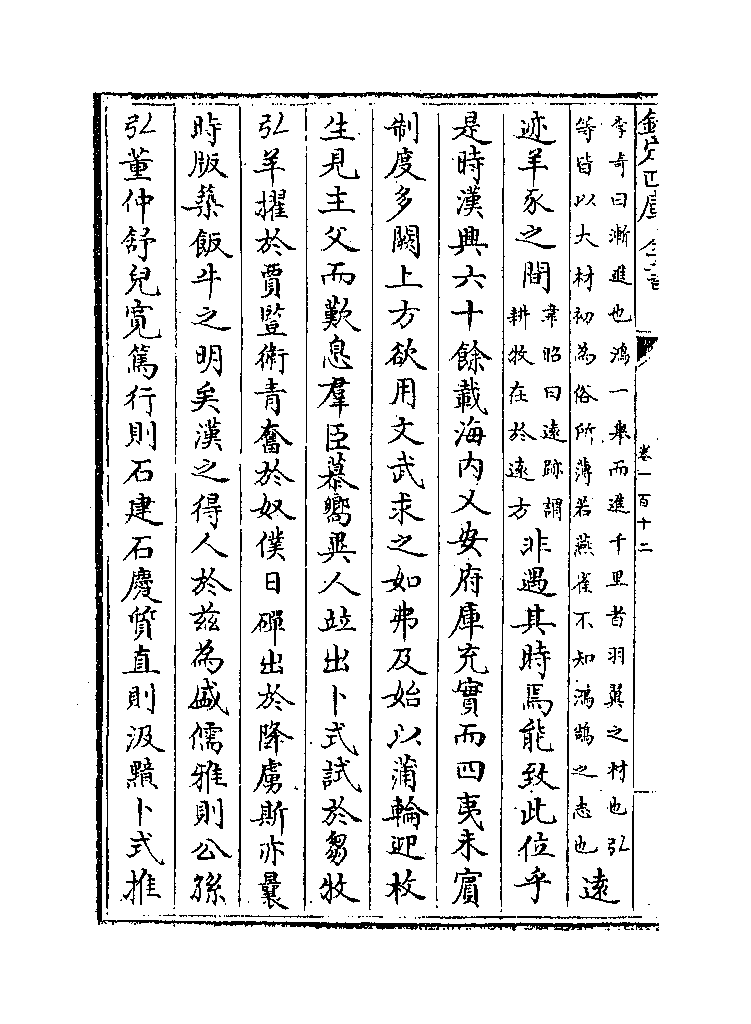 欽定四庫全書
卷一百十二
李奇曰漸進也鴻一舉而進千里者羽翼之材也弘
等皆以大材初為俗所薄若燕雀不知鴻鵠之志也
遠
迹羊豕之間
韋昭曰遠跡謂
耕牧在於遠方
非遇其時焉能致此位乎
是時漢興六十餘載海内乂安府庫充實而四夷未賔
制度多闕上方欲用文武求之如弗及始以蒲輪迎枚
生見主父而歎息羣臣慕嚮異人竝出卜式試於芻牧
弘羊擢於賈豎衛青奮於奴僕日磾出於降虜斯亦曩
時版築飯牛之明矣漢之得人於兹為盛儒雅則公孫
弘董仲舒兒寛篤行則石建石慶質直則汲黯卜式推